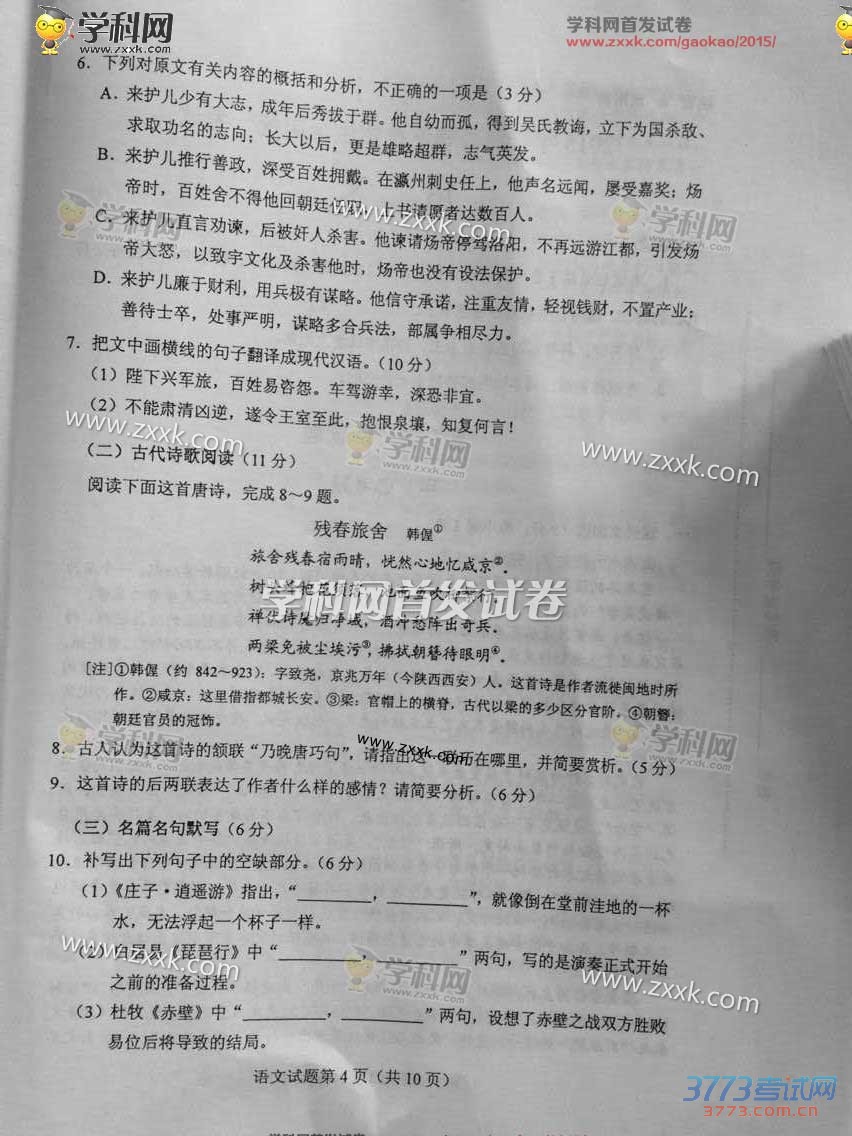 学科网
www.zxxk.com
学科网首发试卷
www.zxxk.com/gaokao/2015/
6．下列对原文有关内容的概括和分析，不正确的一项是（3 分）
A．来护儿少有大志，成年后秀拔于群。他自幼而孤，得到吴氏教诲，立下为国杀敌、
求取功名的志向；长大以后，更是雄略超群，志气英发。
B．来护儿推行善政，深受百姓拥戴。在瀛州刺史任上，他声名远闻，屡受嘉奖；炀
帝时，百姓舍不得他回朝廷任职，上书请愿者达数百人。
C．来护儿直言劝谏，后被奸人杀害。他谏请炀帝停驾洛阳，不再远游江都，引发炀
帝大怒，以致宇文化及杀害他时，炀帝也没有设法保护。
D．来护儿廉于财利，用兵极有谋略。他信守承诺，注重友情，轻视钱财，不置产业；
善待士卒，处事严明，谋略多合兵法，部属争相尽力。
7．把文中画横线的句子翻译成现代汉语。（10 分）
（1）陛下兴军旅，百姓易咨怨。车驾游幸，深恐非宜。
（2）不能肃清凶逆，遂令王室至此，抱恨泉壤，知复何言！
（二）古代诗歌阅读（11 分）
阅读下面这首唐诗，完成 8～9 题。
残春旅舍 韩偓①
旅舍残春宿雨晴，恍然心地忆咸京②。
树头
学科网首发试卷
禅伏诗魔归净域，酒冲愁阵出奇兵。
两梁免被尘埃污③，拂拭朝簪待眼明④。
[注]①韩偓（约 842～923）：字致尧，京兆万年（今陕西西安）人。这首诗是作者流徙闽地时所
作。②咸京：这里借指都城长安。③梁：官帽上的横脊，古代以梁的多少区分官阶。④朝簪：
朝廷官员的冠饰。
8．古人认为这首诗的颔联“乃晚唐巧句”，请指出这一巧在哪里，并简要赏析。（5 分）
9．这首诗的后两联表达了作者什么样的感情？请简要分析。（6 分）
（三）名篇名句默写（6 分）
10．补写出下列句子中的空缺部分。（6 分）
（1）《庄子·逍遥游》指出，“________，________”，就像倒在堂前洼地的一杯
水，无法浮起一个杯子一样。
（2）白居易《琵琶行》中“________，________”两句，写的是演奏正式开始
之前的准备过程。
（3）杜牧《赤壁》中“________，________”两句，设想了赤壁之战双方胜败
易位后将导致的结局。
语文试题第 4 页（共 10 页）
3773考试网
3773.com.cn